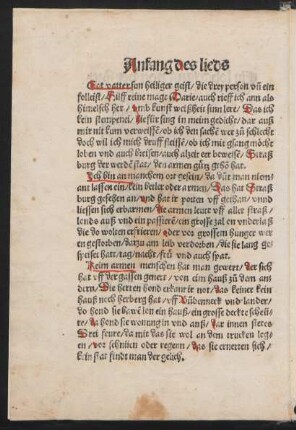 Anfang des lieds
Got vatter sun heiliger geist / die drey person vñ ein
folleist / Hilff reine magt Maria / auch rieff ich ann als
himelsch her / vmb kunst weißheit sinn lere / Das ich
kein stempenei / hie für sing in meim gedicht / dar auß
mit nit kum verweissẽ / ob ich den sachẽ wer zů schlecht
doch wil ich mich druff fleissẽ / ob ich mit gsang möcht
loben vnd auch breisen / auch alzeit eer beweisẽ / Straß
burg der werdẽ stat / die armen gůtz gesthõ hat.
Ich bin an manchem ort gesein / da wãr man niem/
ant lassen ein / kein betler oder armen / Das hat Straß
burg gesehen an / vnd hat ir pforten vff gethan / vnnd
liessen sich erbarmen / die armen leut vff aller straß /
lands auß vnd ein passierẽ / ein grosse zal on vnderlaß
die do wolten erfrieren / oder vor grossem hunger wer
en gestorben / darzu am leib verdorben / die sie lang ge
speiset hatt / tag / nacht / frů vnd auch spat.
Keim armen menschen hat man gewert / der sich
hat vff der gassen genert / von eim hauß zů dem ann
dern. Die herren hond erkant ir not / das keiner kein
hauß noch herberg hat / vff Rüdenneck vnd lander /
do hond sie bawẽ lon ein hauß / ein grosse deckte scheü/
re / da hond sie wonung in vnd auß / dar innen stetes
Brei feure / da mit das sie wol an dem trucken leg/
en / vor schnihen oder regenn / das sie ernerten sich /
kein stat findt man der gelich.